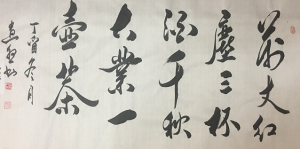 萬丈红
塵三杯
酒千秋
大業一
壶茶
丁酉冬月